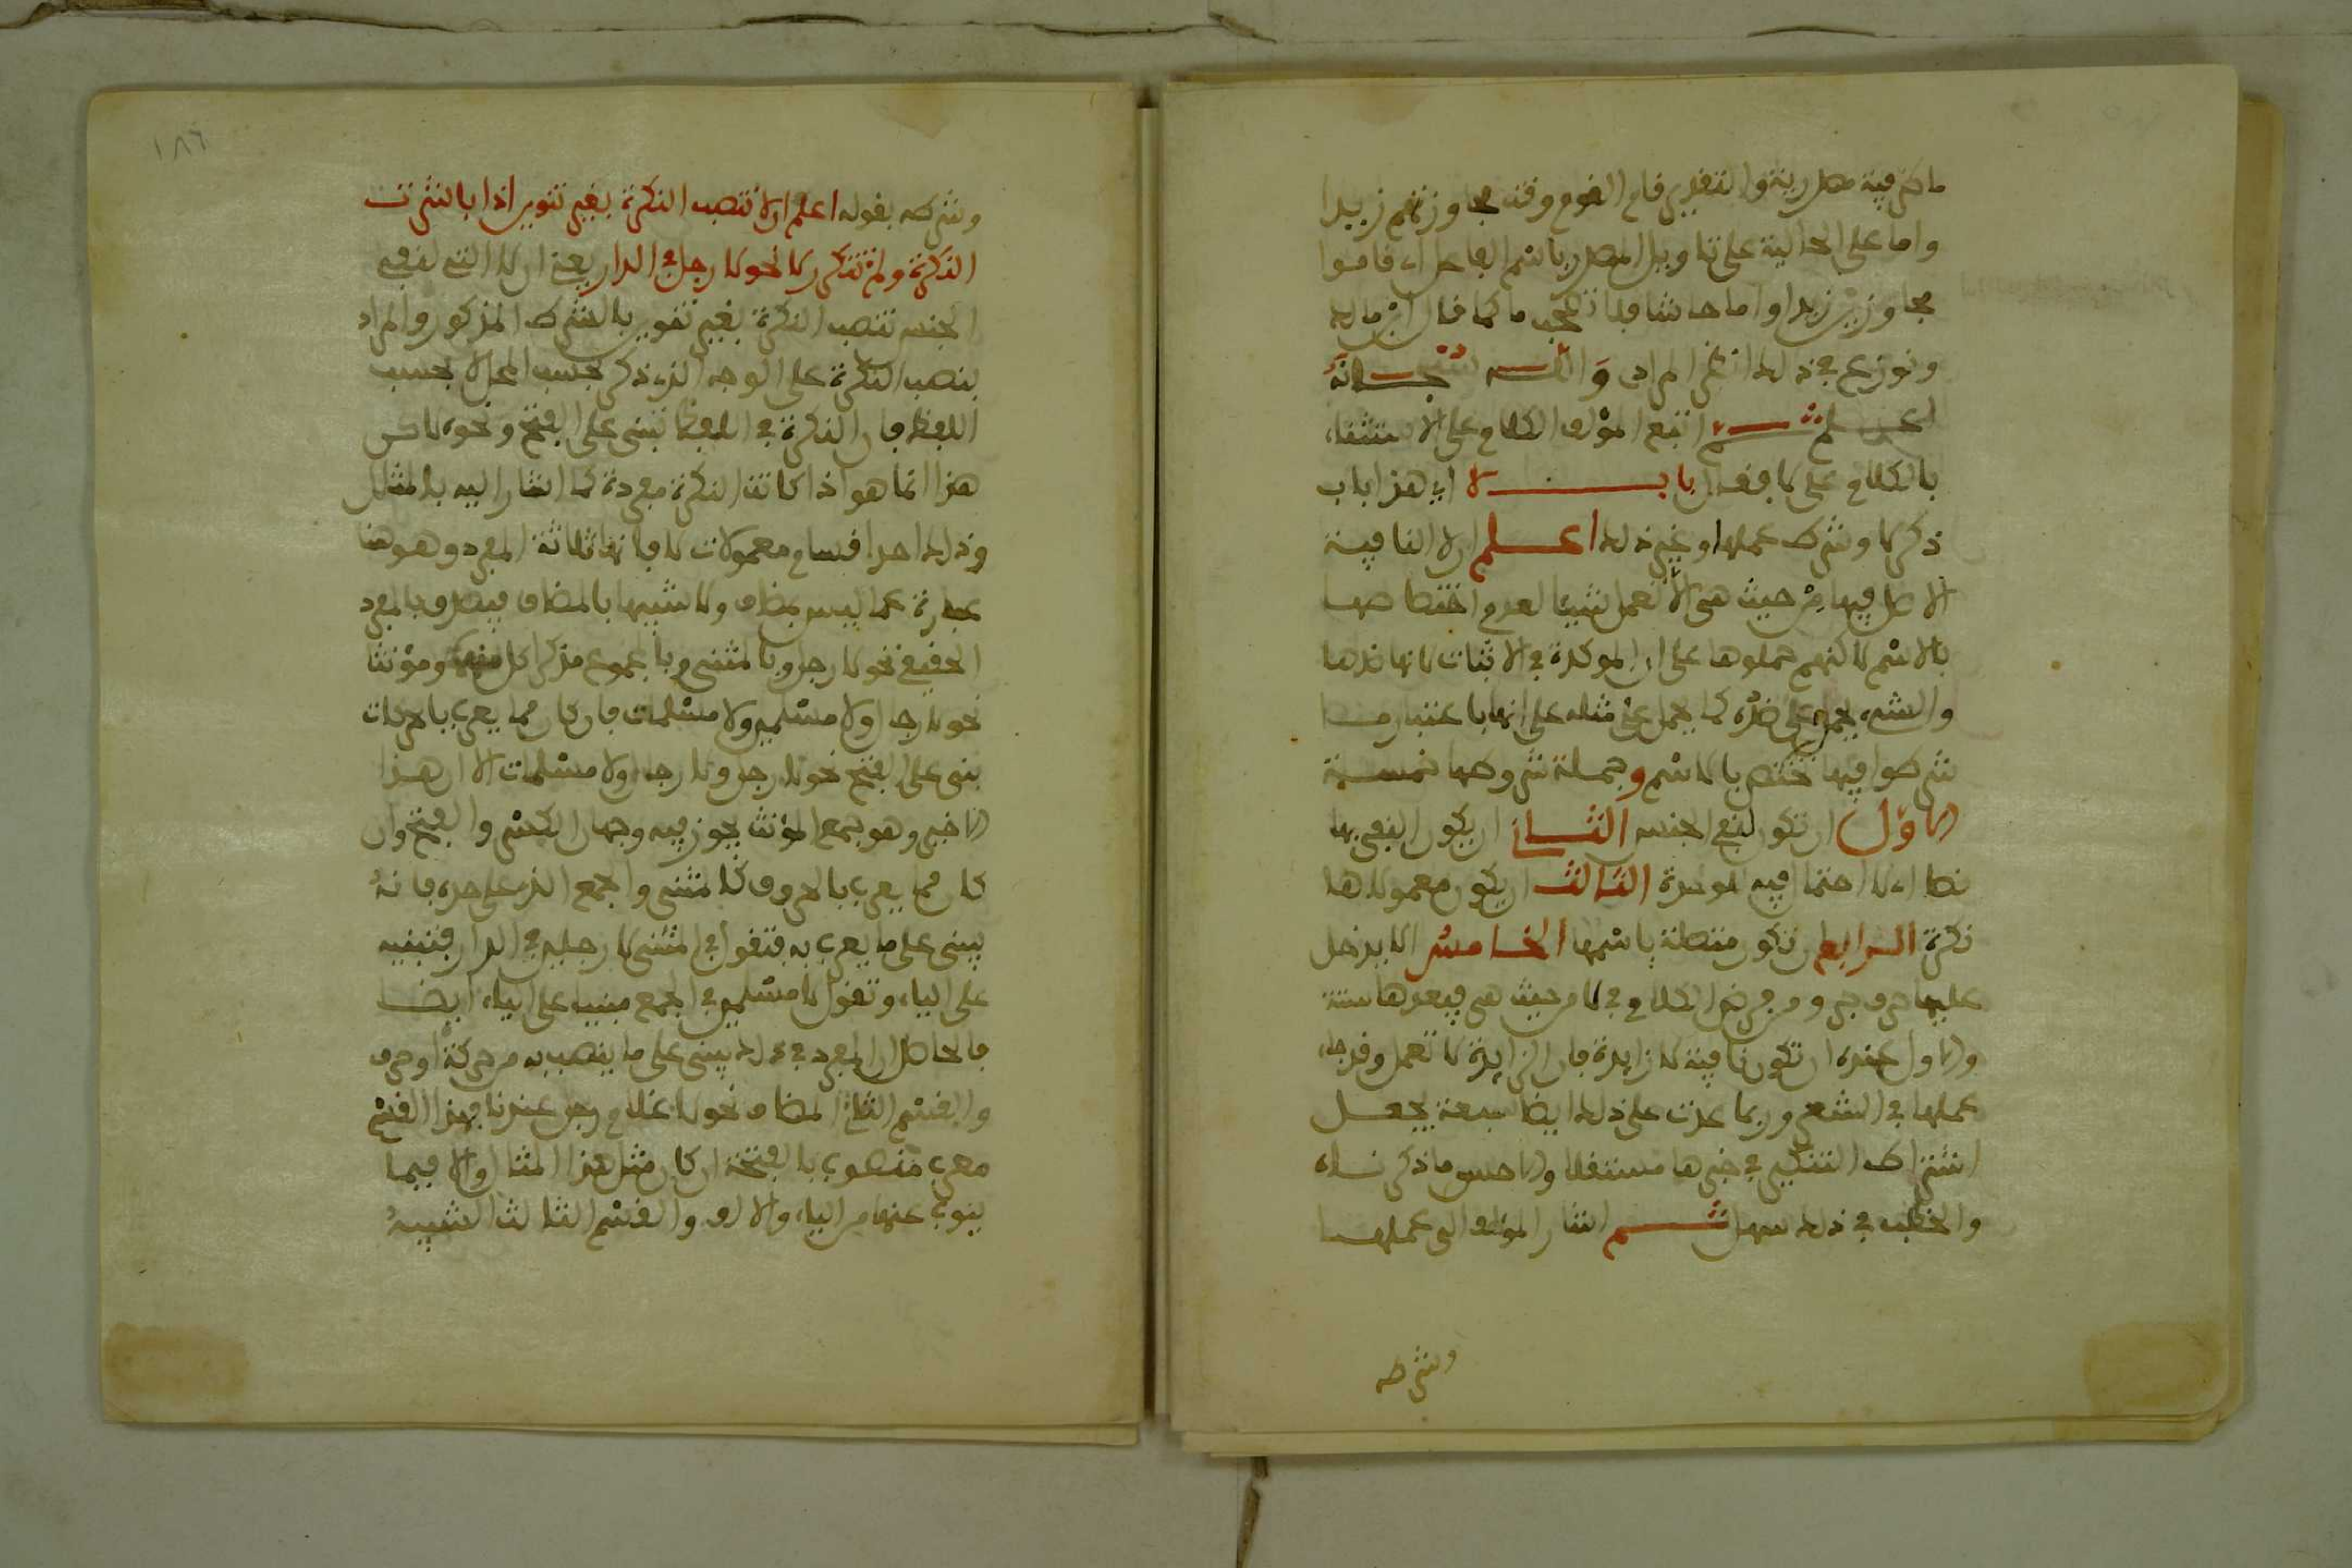 ما كثرفية مصدرية والتقدير قام القوم وقت مجاوزتهم زيدا
واما على الحالية على تاويل المصدر باسم الفاعل اي قاموا
مجاوزين زيدا واما حاشا فلا تصحب ما كما قال ابن مالك
ونوزع في ذلك انظر المرادي والله سبحانه
اعلم ثم اتبع المؤلف الكلام على الاستثناء
بالكلام على لا فقال باب لا اي هذا باب
ذكر لا وشرط عملها وغير ذلك اعلم ان لا النافية
الاصل فيها من حيث هي الا تعمل شيئا لعدم اختصاصها
بالاسم لاكنهم حملوها على ان الموكدة في الاثبات لانها ضدها
والشيء يحمل على ضده كما يحمل على مثله على انها باعتبار ما
شرطوا فيها تختص بالاسم وجملة شروطها خمسة
الاول ان تكون لنفي الجنس الثاني ان يكون النفي بها
نصا اي لا احتمال فيه للوحدة الثالث ان يكون معمولاها
نكرة الرابع ان تكون متصلة باسمها الخامس الا يدخل
عليها حرف جر ومن فرض الكلام في لا من حيث هي فيعدها ستة
والاول عنده ان تكون نافية لا زايدة فان الزايدة لا تعمل وقد جاء
عملها في الشعر وربما عدت على ذلك ايضا سبعة بجعل
اشتراط التنكير في خبرها مستقلا والاحسن ما ذكرناه
والخطب في ذلك سهل ثم اشار المؤلف الى عملها
وشرطه
١٨٦
وشرطه بقوله اعلم ان لا تنصب النكرة بغير تنوين اذا باشرت
النكرة ولم تتكرر لا نحو لا رجل في الدار يعني ان لا التي لنفي
الجنس تنصب النكرة بغير تنوين بالشرط المذكور والمراد
بنصب النكرة على الوجه الذي ذكر بحسب المحل لا بحسب
اللفظ فان النكرة في اللفظ تبنى على الفتح ونحوه لاكن
هذا انما هو اذا كانت النكرة مفردة كما اشار اليه بالمثال
وذلك احد اقسام معمولات لا فانها ثلاثة المفرد وهو هنا
عبارة عما ليس بمضاف ولا شبيها بالمضاف فيصدق بالمفرد
الحقيقي نحو لا رجل وبالمثنى وبالمجموع مذكرا كل منهما ومؤنثا
نحو لا رجال ولا مسلمين ولا مسلمات فان كان مما يعرب بالحركات
بني على الفتح نحو لا رجل ولا رجال ولا مسلمات الا ان هذا
الاخير وهو جمع المؤنث يجوز فيه وجهان الكسر والفتح وان
كان مما يعرب بالحروف كالمثنى والجمع الذي على حده فانه
يبنى على ما يعرب به فتقول في المثنى لا رجلين في الدار فتبنيه
على الياء وتقول لا مسلمين في الجمع مبنيا على الياء ايضا
فالحاصل ان المفرد في ذلك يبنى على ما ينصب به من حركة او حرف
والقسم الثاني المضاف نحو لا غلام رجل عندنا فهذا القسم
معرب منصوب بالفتحة ان كان مثل هذا المثال والا فبما
ينوب عنها من الياء والالف والقسم الثالث الشبيه